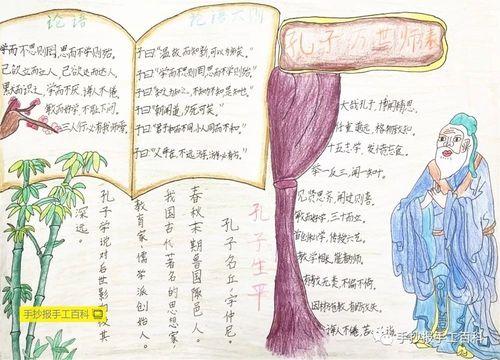 论语
学而不思则罔,思而不学则殆。
己欲立而立人,己欲达而达人。
默而识之,学而不厌,诲人不倦。
敏而好学,不耻下问。
三人行,必有我师焉。
论语六则
子曰:"温故而知新,可以为师矣。"
子曰:"学而不思则罔,思而不学则殆。"
子曰:"知之为知之,不知为不知,是知也。"
子曰:"朝闻道,夕死可矣。"
子曰:"君子和而不同,小人同而不和。"
子曰:"父母在,不远游,游必有方。"
孔子
大哉孔子,博闻精思。
任重道远,格物致知。
十五志学,发愤忘食。
举一反三,闻一知十。
见贤思齐,闻过则喜。
敏而好学,三十而立。
有教无类,不偏不倚。
孔子生平
孔子名丘,字仲尼。
春秋末期鲁国陬邑人。
我国古代著名的思想家、
教育家、儒学派创始人。
孔子学说对后世影响极其
深远。
手抄报手工百科
手抄报手工百科